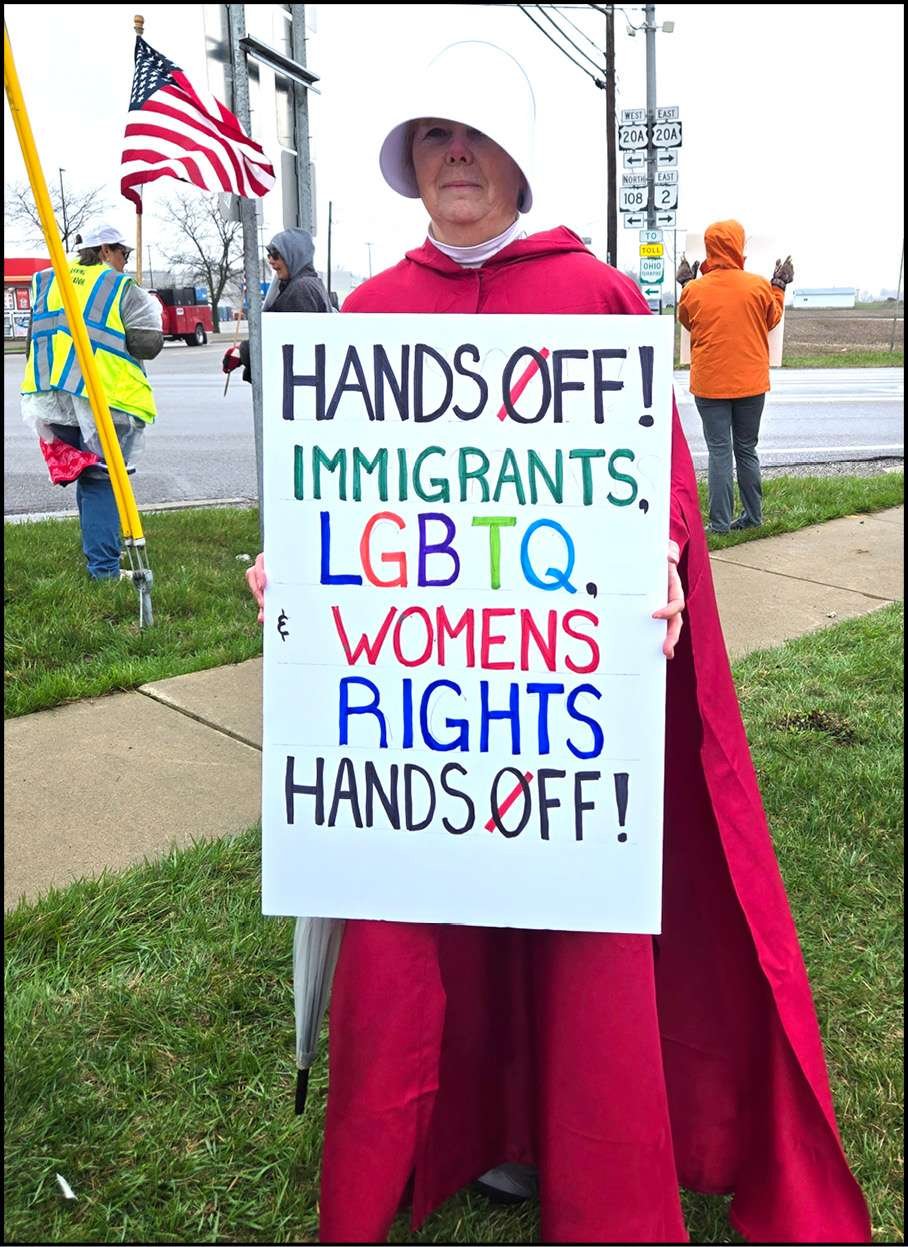 WEST
EAST
20A
20A
NORTH
EAST
108
2
TO
TOLL
OHIO
TURNPIKE
HANDS OFF!
IMMIGRANTS,
LGBTQ,
& WOMENS
RIGHTS
HANDS OFF!